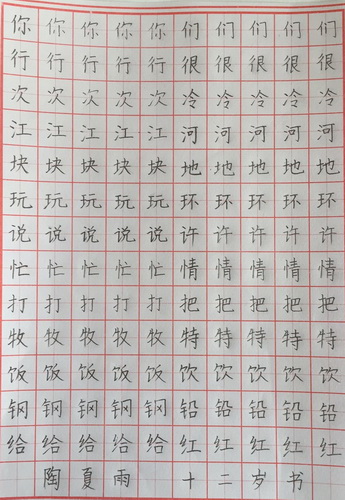 你你你你你们们们们们
行行行行行很很很很很
次次次次次冷冷冷冷冷
江江江江江河河河河河
块块块块块地地地地地
玩玩玩玩玩环环环环环
说说说说说许许许许许
忙忙忙忙忙情情情情情
打打打打打把把把把把
牧牧牧牧牧特特特特特
饭饭饭饭饭饮饮饮饮饮
钢钢钢钢钢铅铅铅铅铅
给给给给给红红红红红
陶夏雨 十二岁书